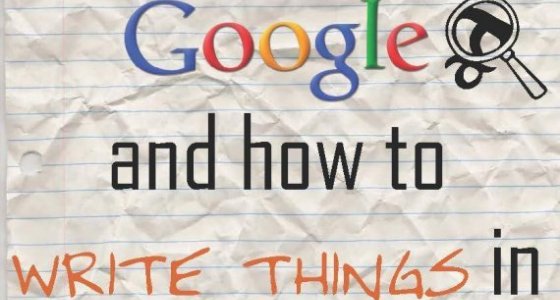 Google
and how to
WRITE THINGS in